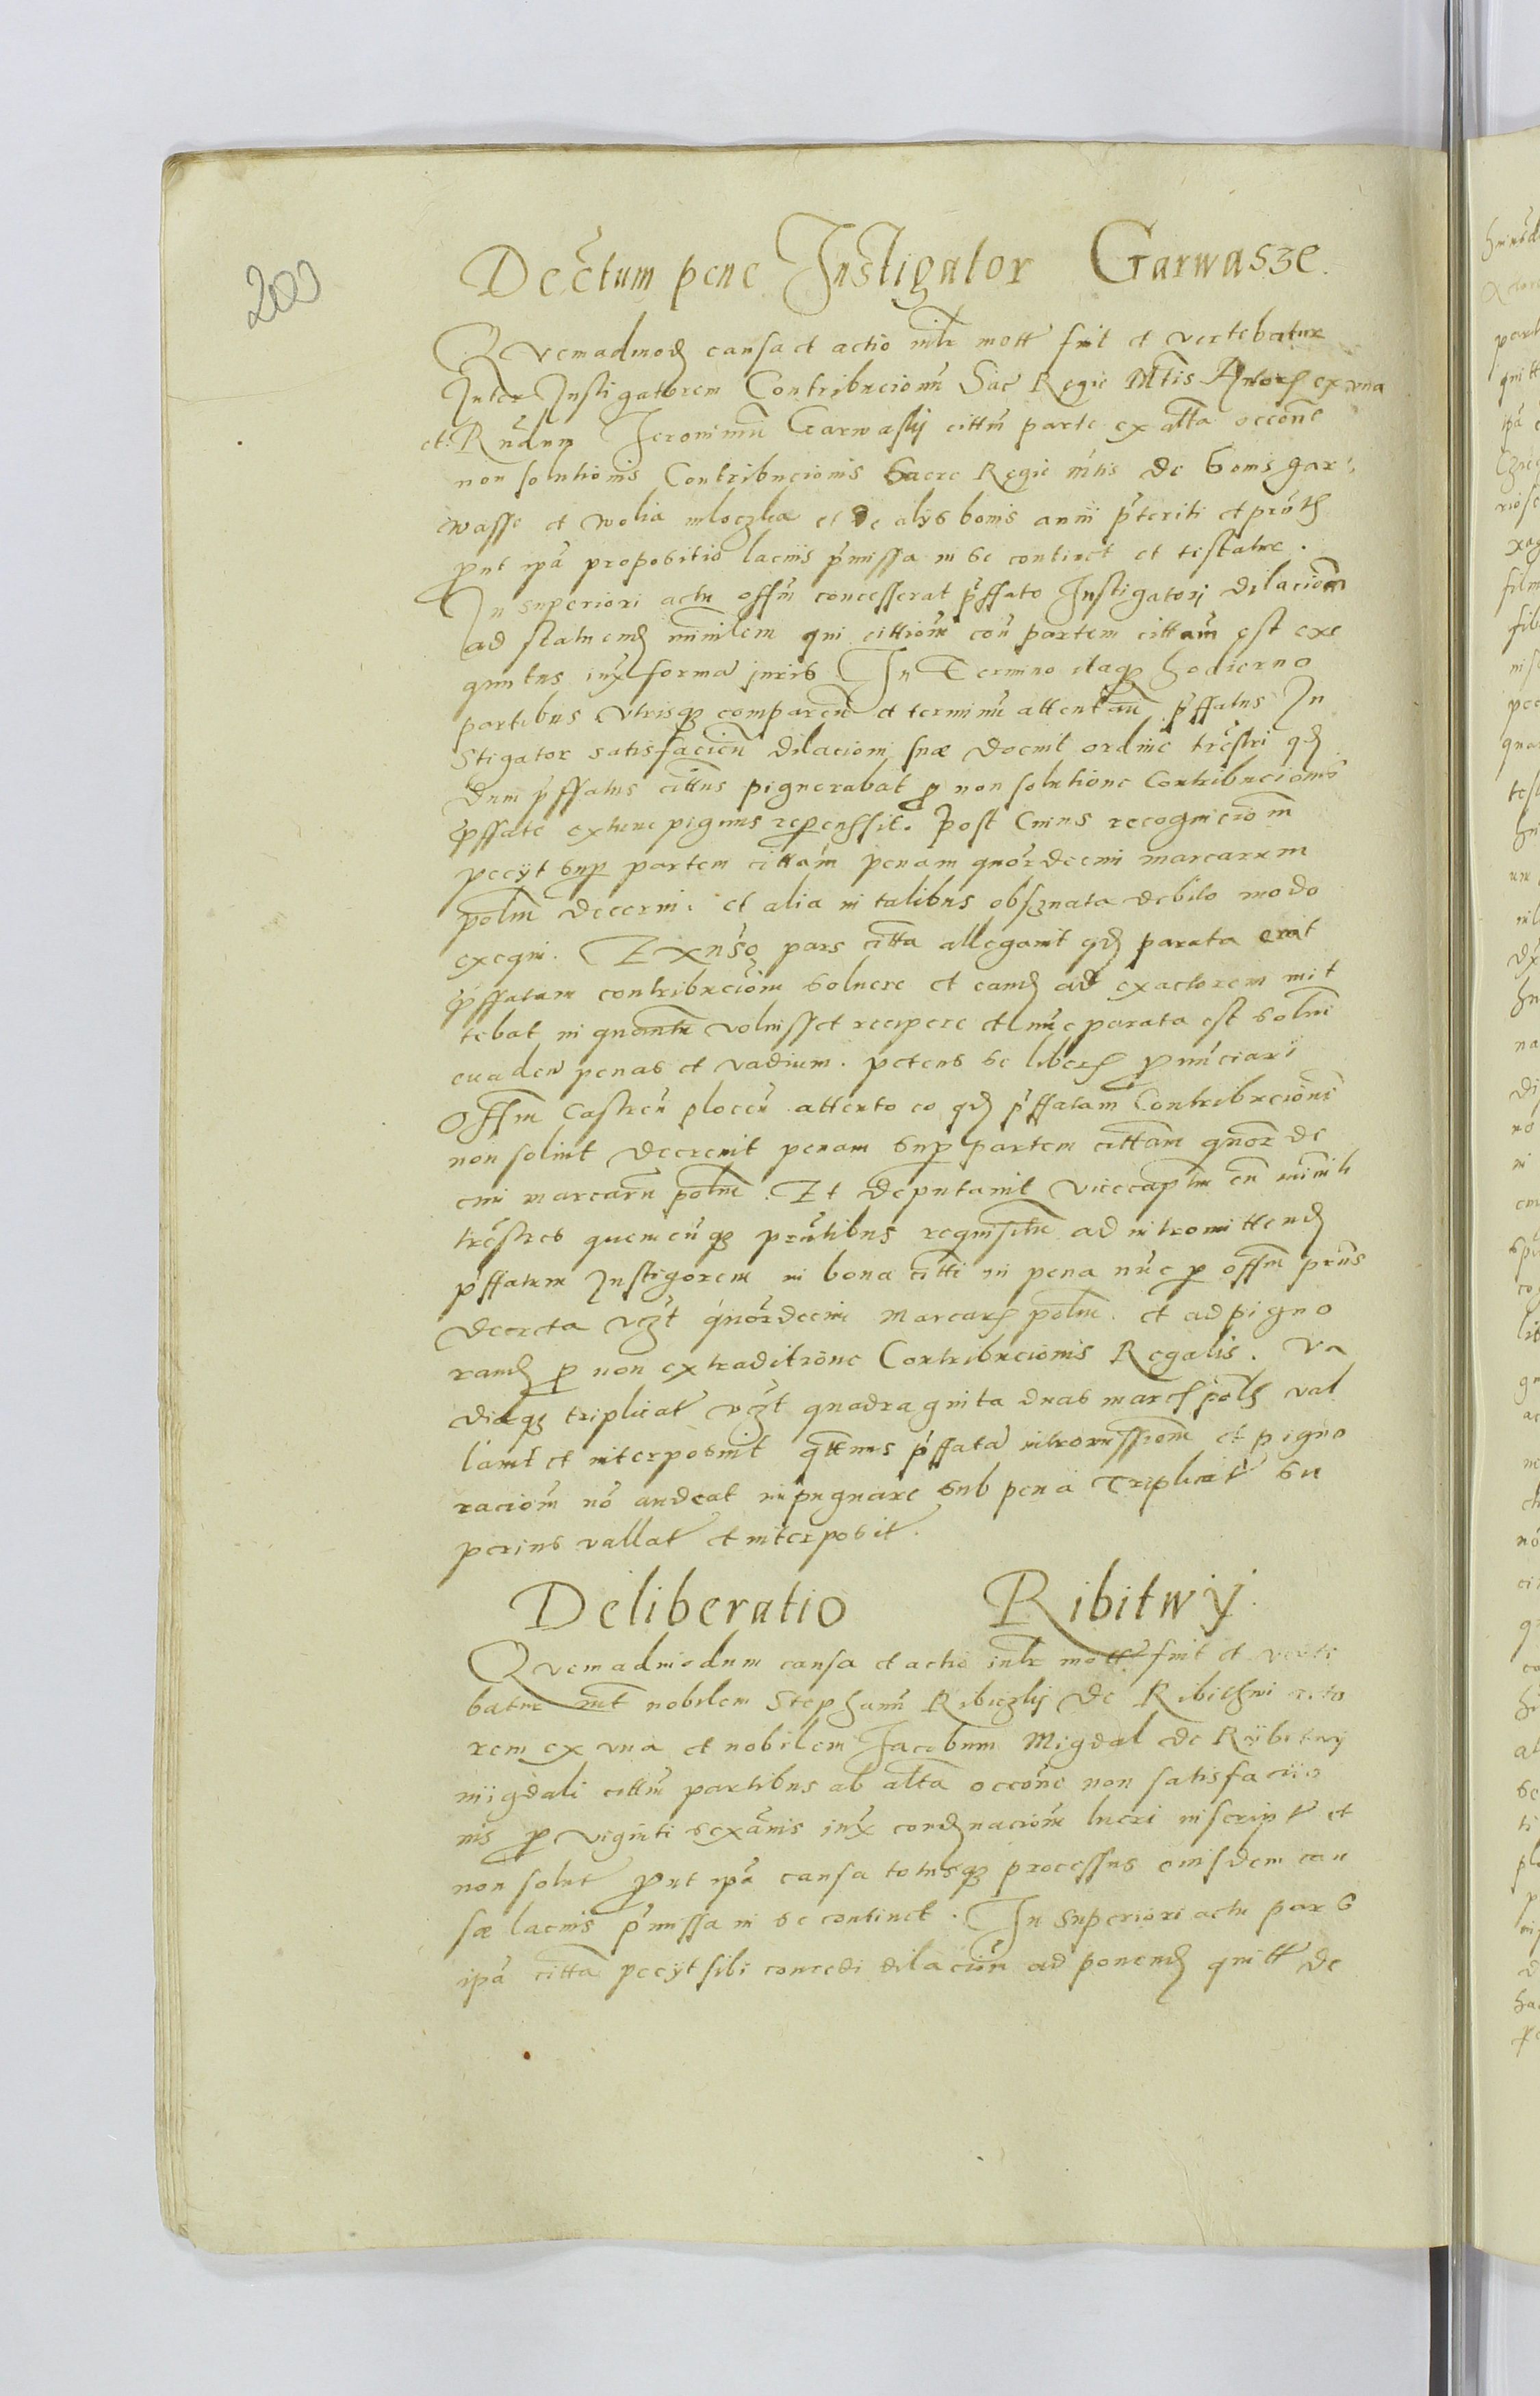 200
Decretum pene Instigator Garwasze
Quemadmod causa et actio intr mott fuit et vertebatur
Inter Instigatorem Contribucionu Sac Regie Mtis Actore ex una
et Rndum Jeronimu Garwaski cittm parte ex alta occone
non solutionis Contribucionis Sacre Regie mtis de bonis gar
wasse et wolia mloczka et de alys bonis anni pteriti et
put ipa propositio lacius pmissa in se continet et testatur.
In superiori actu offm concesserat pffato Instigatorj dilaciom
ad statuend ministlem qui cittiom con partem cittam est exe
quutus iux forma juris In Termino itaq hodierno
partibus utrisq comparen et terminu attentan pffatus In
stigator satisfacien dilacioni suæ docuit ordine trestri qd
dum pffatus cittus pignerabat p non solutione Contribucionis
pffate extunc pignus repcussit. Post Cuius recognicionm
pecyt sup partem cittam penam quordecim marcarum
polm decerni. et alia in talibus obsnata debito modo
exequi. Exnso pars citta allegavit qd parata erat
pffatam contribuciom solvere et eand ad exactorem mit
tebat in quantu voluisset recipere et nuc parata est solui
evaden penas et vadium. petens se liber pnunciari
Offm Castren plocen attento eo qd pffatam Contribucioni
non soluit decrevit penam sup partem cittam quor de
cim marcaru polm. Et deputavit vicecaptm cu minist
trestres quemcunq prntibus requisitu ad intromittend
pffatum Instigorem in bona citti in pena nuc p offm pnus
decreta vzt quordecim marcar polm. et ad pigno
rand p non extraditione Contribucionis Regalis. Va
diaq triplicat vzt quadraginta duas marc pol val
lavit et interposuit qttnus pffata intromissiom et pigno
raciom no audeat inpugnare sub pena Triplicat su
perius vallat et interposit.
Deliberatio Ribitwÿ
Quemadmodum causa et actio intr mott fuit et verte
batur int nobilem Stephanu Ribiczky de Ribithwi acto
rem ex una et nobilem Jacobum Migdal de Rÿbitwÿ
migdali cittm partibus ab alta occone non satisfaccio
nis p viginti sexanis iux condnaciom lucri inscript et
non solut put ipa causa totusq processus eiusdem cau
sæ lacius pmissa in se continet. In superiori actu pars
ipa citta pecyt sibi concedi dilaciom ad ponend quitt de